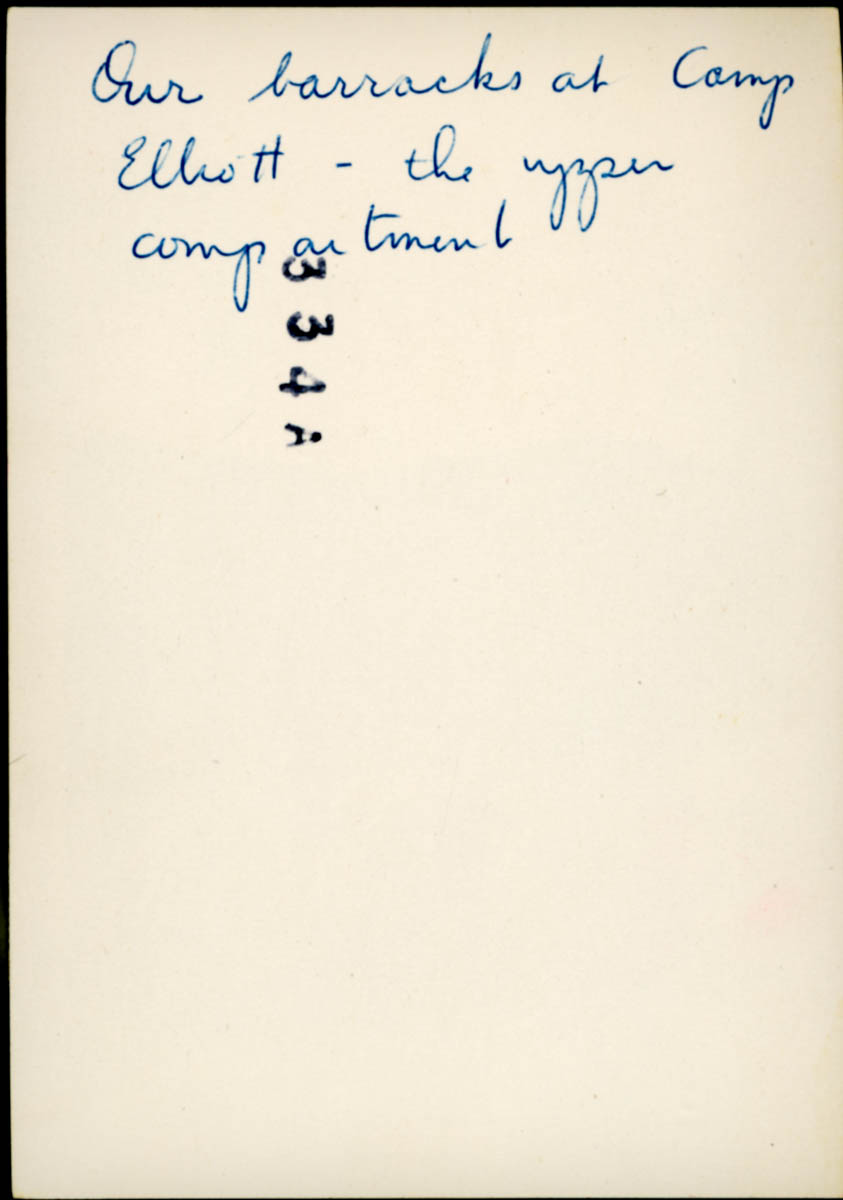 Our barracks at Camp
Elliott - the upper
compartment
334A